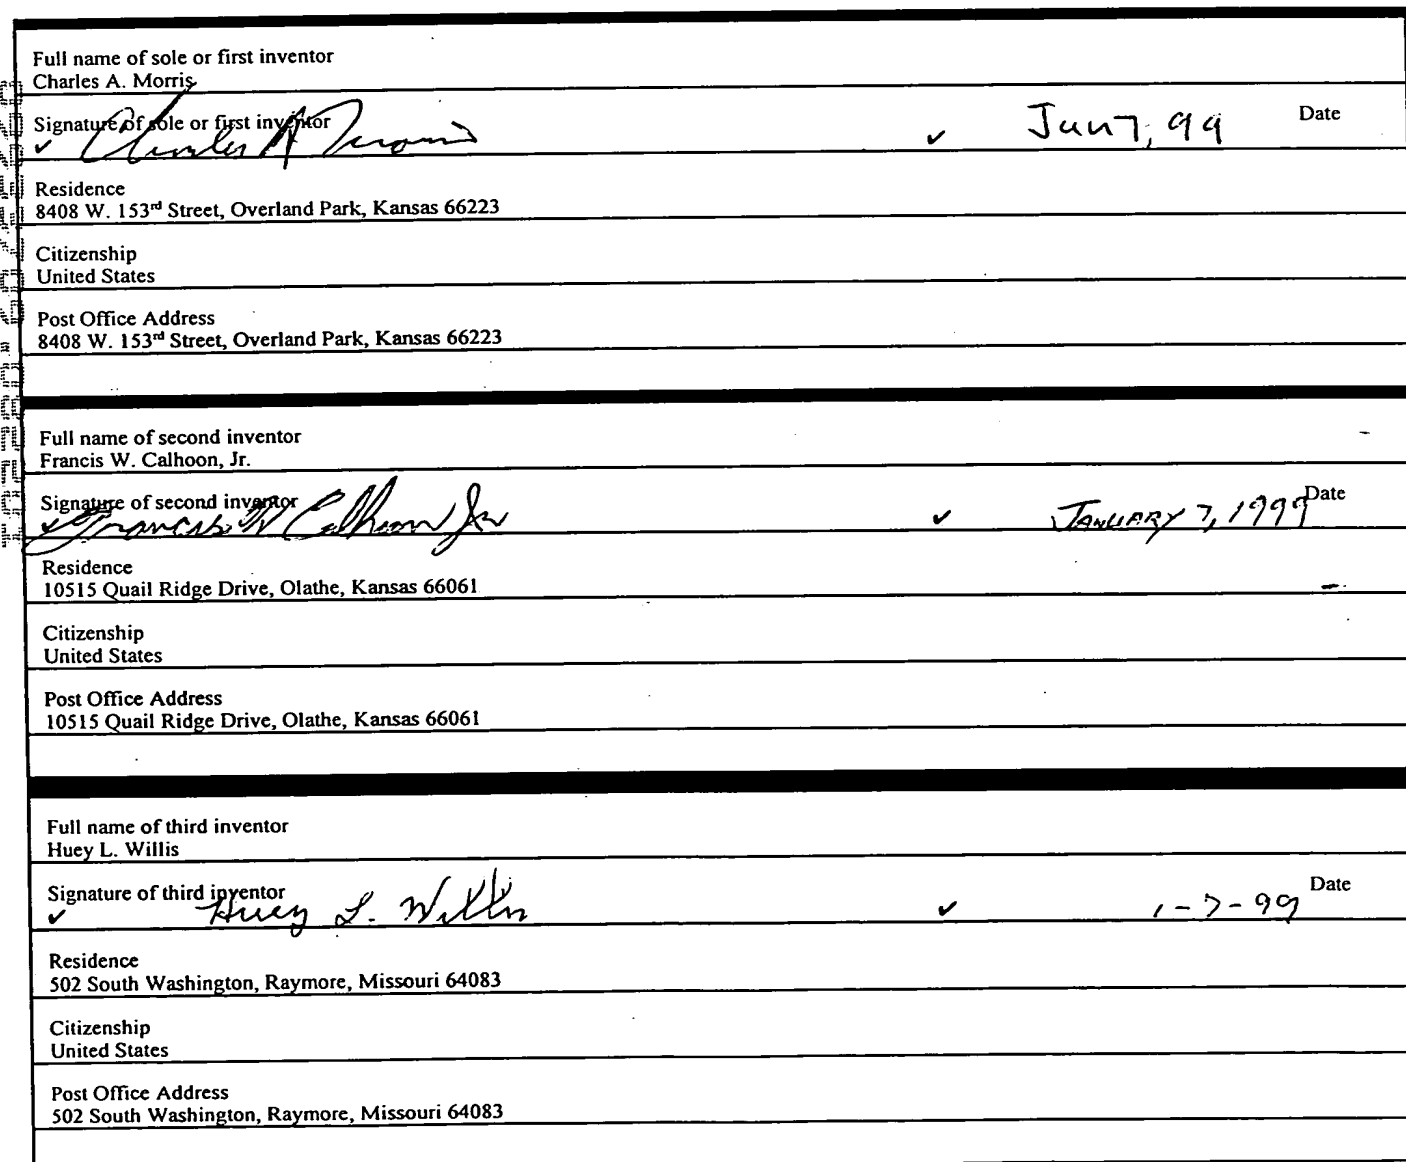 Full name of sole or first inventor
Charles A. Morris
Signature of sole or first inventor
✓ Charles A Morris ✓ Jan 7, 99 Date
Residence
8408 W. 153rd Street, Overland Park, Kansas 66223
Citizenship
United States
Post Office Address
8408 W. 153rd Street, Overland Park, Kansas 66223
Full name of second inventor
Francis W. Calhoon, Jr.
Signature of second inventor
✓ Francis W Calhoon Jr ✓ JANUARY 7, 1999 Date
Residence
10515 Quail Ridge Drive, Olathe, Kansas 66061
Citizenship
United States
Post Office Address
10515 Quail Ridge Drive, Olathe, Kansas 66061
Full name of third inventor
Huey L. Willis
Signature of third inventor
✓ Huey L. Willis ✓ 1-7-99 Date
Residence
502 South Washington, Raymore, Missouri 64083
Citizenship
United States
Post Office Address
502 South Washington, Raymore, Missouri 64083